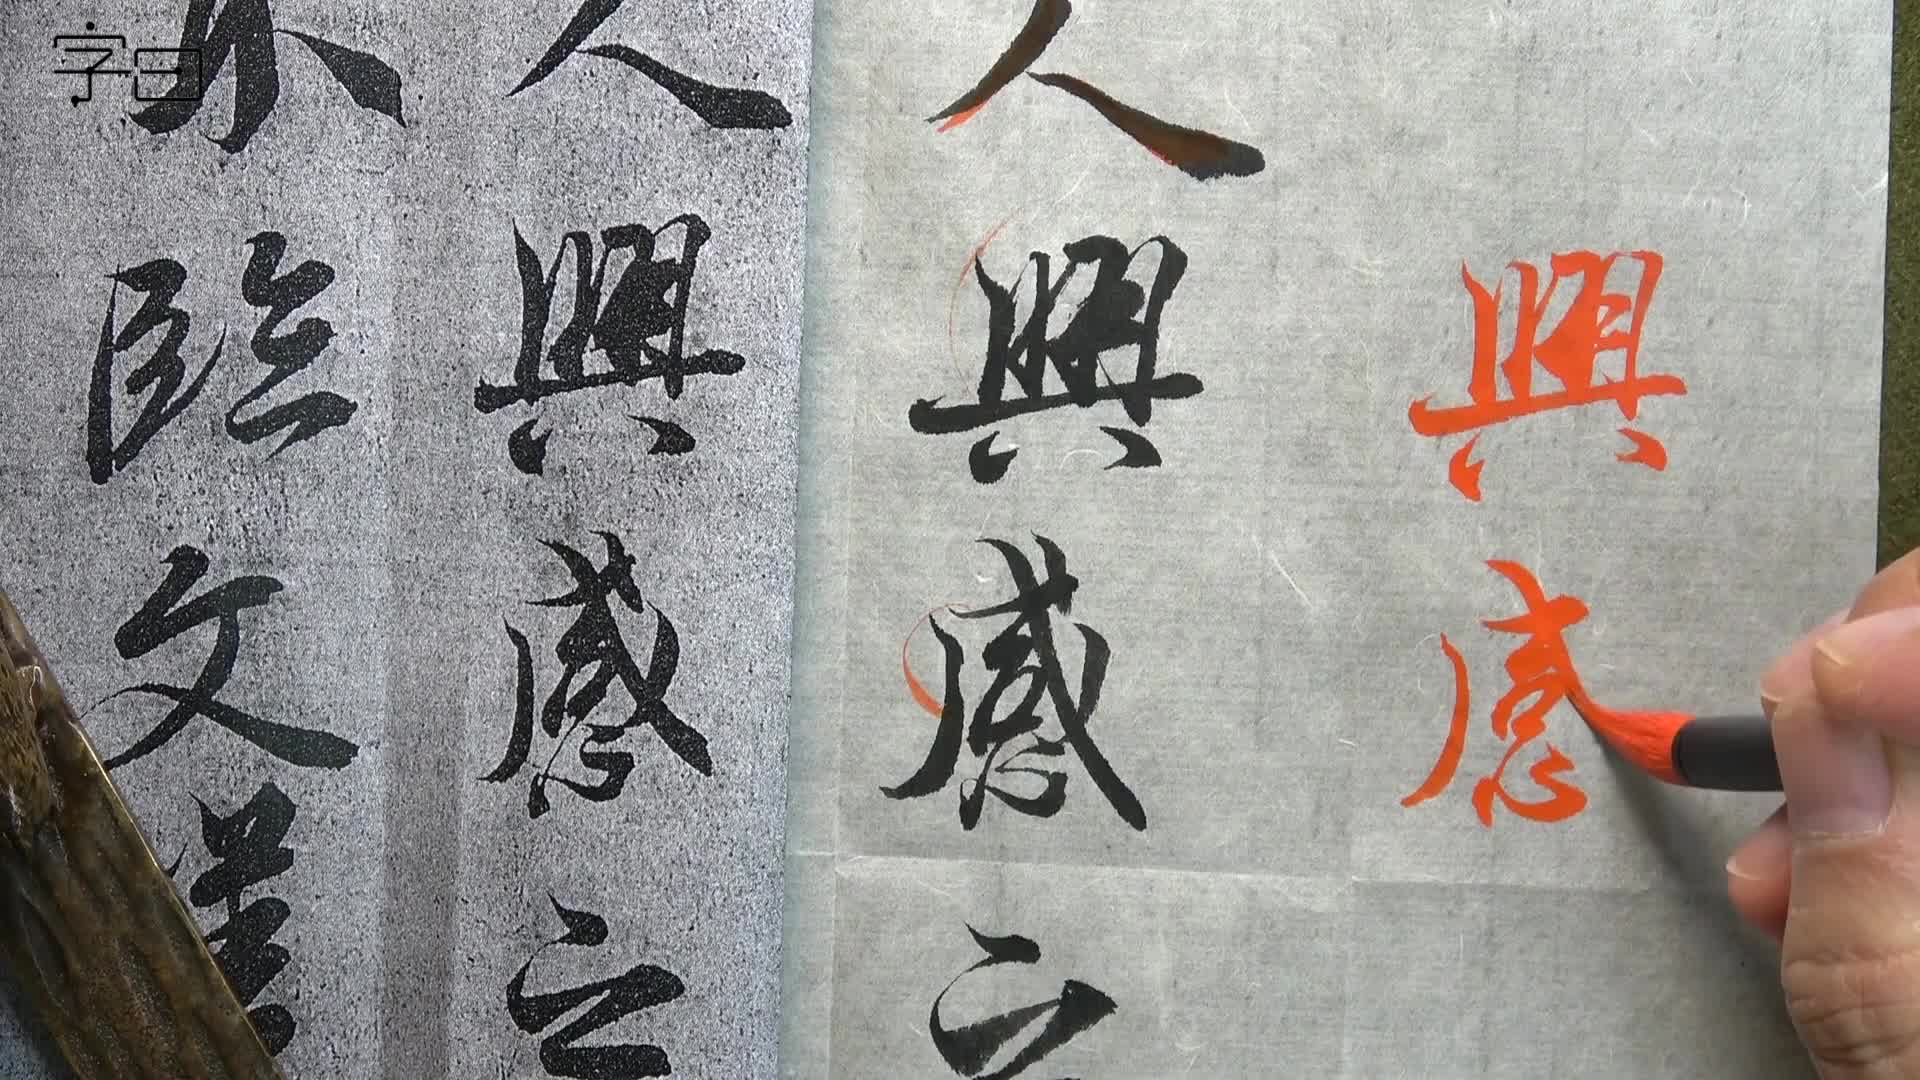 字曰
興感
人興感之
人興感之
不臨文嗟